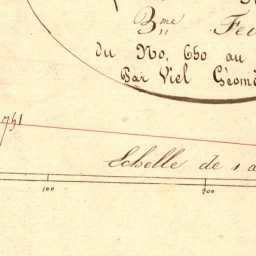 B.me Feu
du No. 650 au
Par Viel Géom
751
Echelle de 1 à
100 200